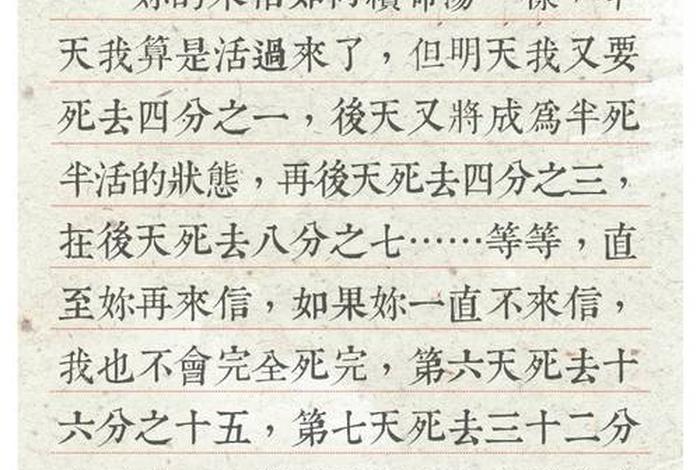 妳的來信如何續命湯一樣，
天我算是活過來了，但明天我又要
死去四分之一，後天又將成爲半死
半活的狀態，再後天死去四分之三，
在後天死去八分之七……等等，直
至妳再來信，如果妳一直不來信，
我也不會完全死完，第六天死去十
六分之十五，第七天死去三十二分